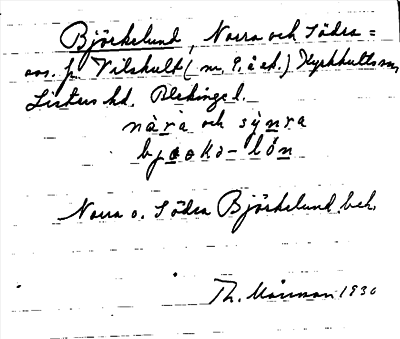 Björkelund, Norra och Södra =
avs. p. Vilshult (nr. 9, å ek.) Kyrkhults sn,
Listers hd. Blekinge l.
nära och synra
Norra o. Södra Björkelund. bek.
Th. Månsson 1930